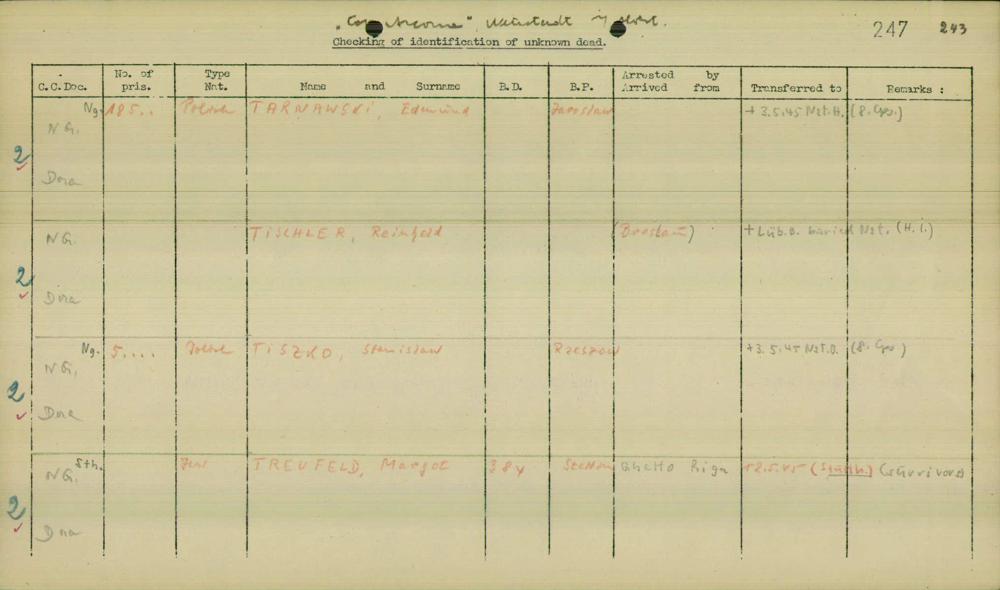 "Cap Arcona" Neustadt i/Holst.
247 243
Checking of identification of unknown dead.
C.C.Doc. No. of pris. Type Nat. Name and Surname B.D. B.P. Arrested by Arrived from Transferred to Remarks :
Ng. 185.. Polish TARNAWSKI, Edmund Jaroslaw + 3.5.45 Nst.H. (8. Gps.)
NG.
2
Dora
NG. TISCHLER, Reinhold (Breslau) + Lüb.B. buried Nst. (H. i.)
2
Dora
Ng. 5.... Polish TISZKO, Stanislaw Rzeszow +3.5.45 Nst.B. (8. Gps)
NG.
2
Dora
Sth. Jew TREUFELD, Margot 384 Stettin Ghetto Riga (survivors)
NG.
2
Dora